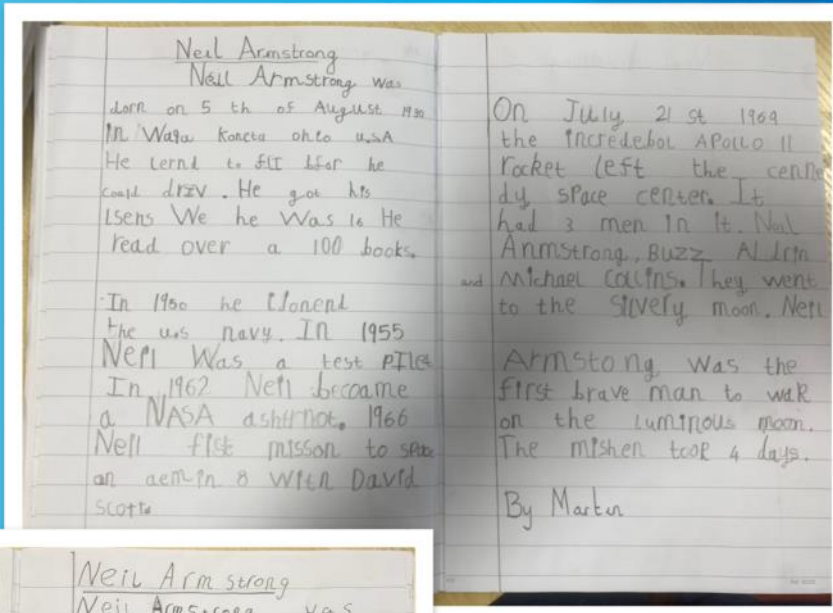 Neil Armstrong
Neil Armstrong was
dorn on 5 th of August 1930
In Wapa koncta ohio U.SA
He lernd to fli bfor he
could drzv. He got his
Lsens We he Was 16 He
read over a 100 books.
In 1950 he
the u.s navy. In 1955
Neil Was a test pilet
In 1962 Neil becoame
a NASA 1966
Neil fist misson to space
an aemin 8 With David
Scott.
On July 21 st 1969
the incredebol APOLLO 11
rocket left the cenne
dy space center. It
had 3 men in it. Neal
Anmstrong, Buzz Aldrin
and Michael Collins. They went
to the silvery moon. Neil
Armstong was the
first brave man to walk
on the luminous moon.
The mishen took 4 days.
By Martin
Neil Armstrong
Neil Armstrong was